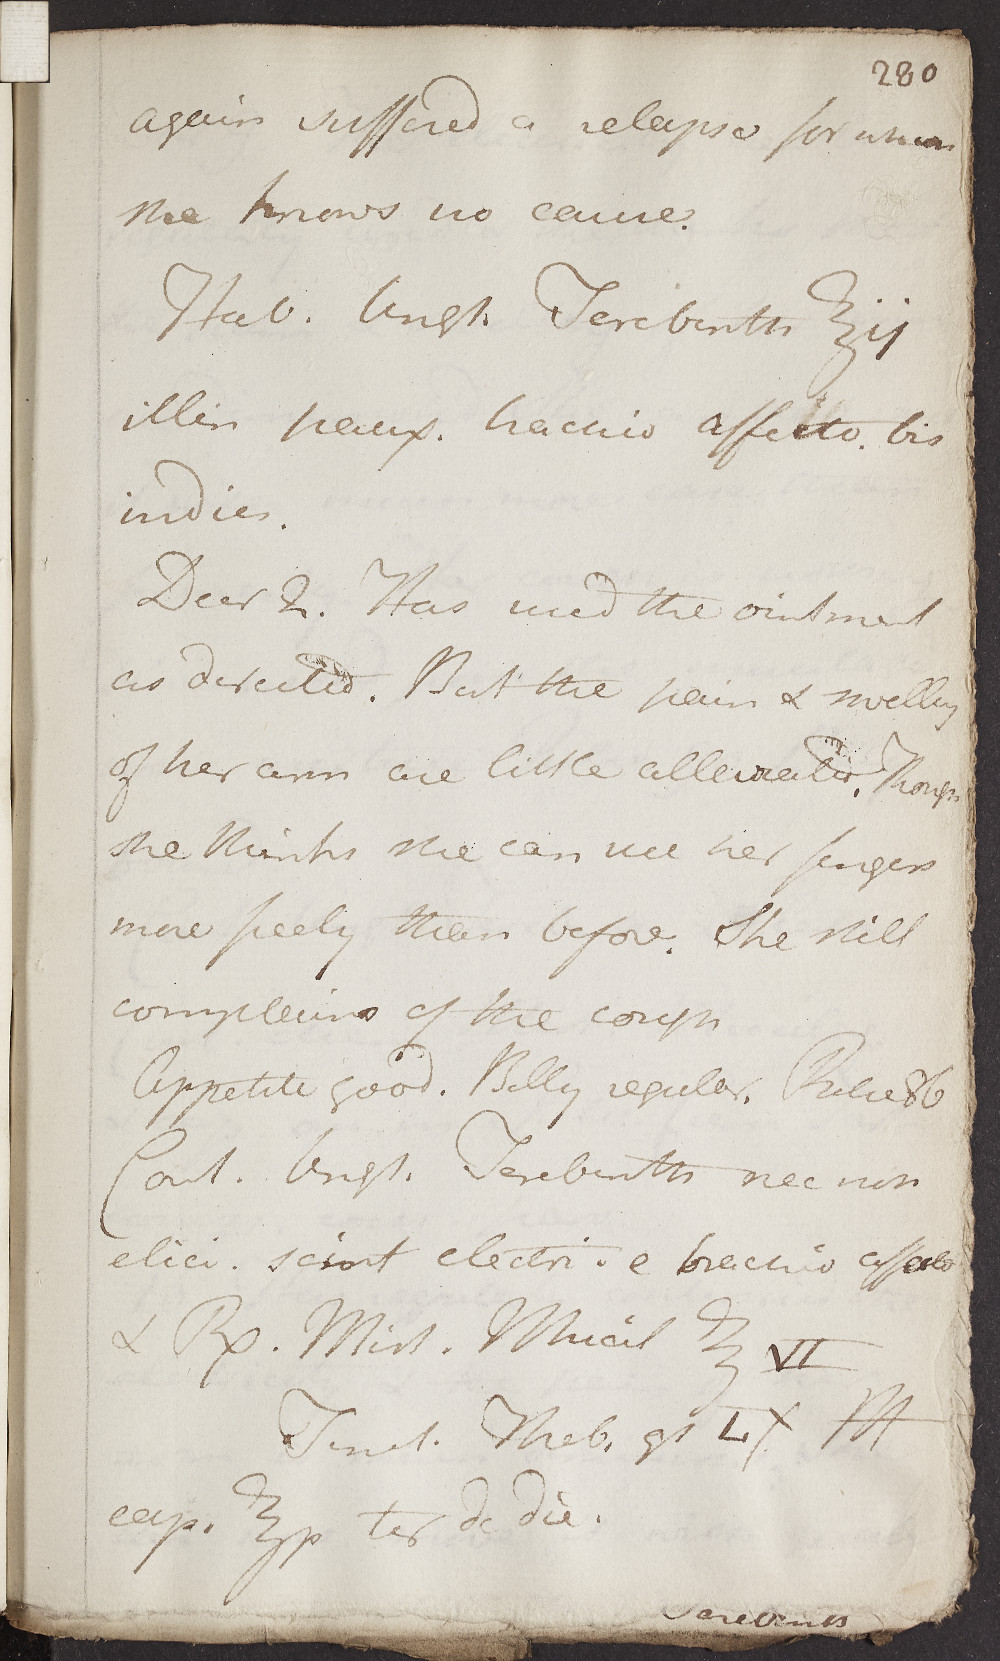 280
again suffered a relapse for whom
she knows no cause.
Hab. Ungt. Terebinth ℥ij
illin paux. brachio affecto. bis
indies.
Decr 2. Has used the ointment
as directed. But the pain & swelling
of her arm are little alleviated. Though
she thinks she can use her fingers
more freely than before. She still
complains of the cough
Appetite good. Belly regular. Pulse 86
Cont. Ungt. Terebinth nec non
elici. scint electri. e brachio affecto
& Rx. Mist. Mucil ℥ VII
Tinct. Theb. gt LX M
cap. ℥p ter de die.
Terebinth